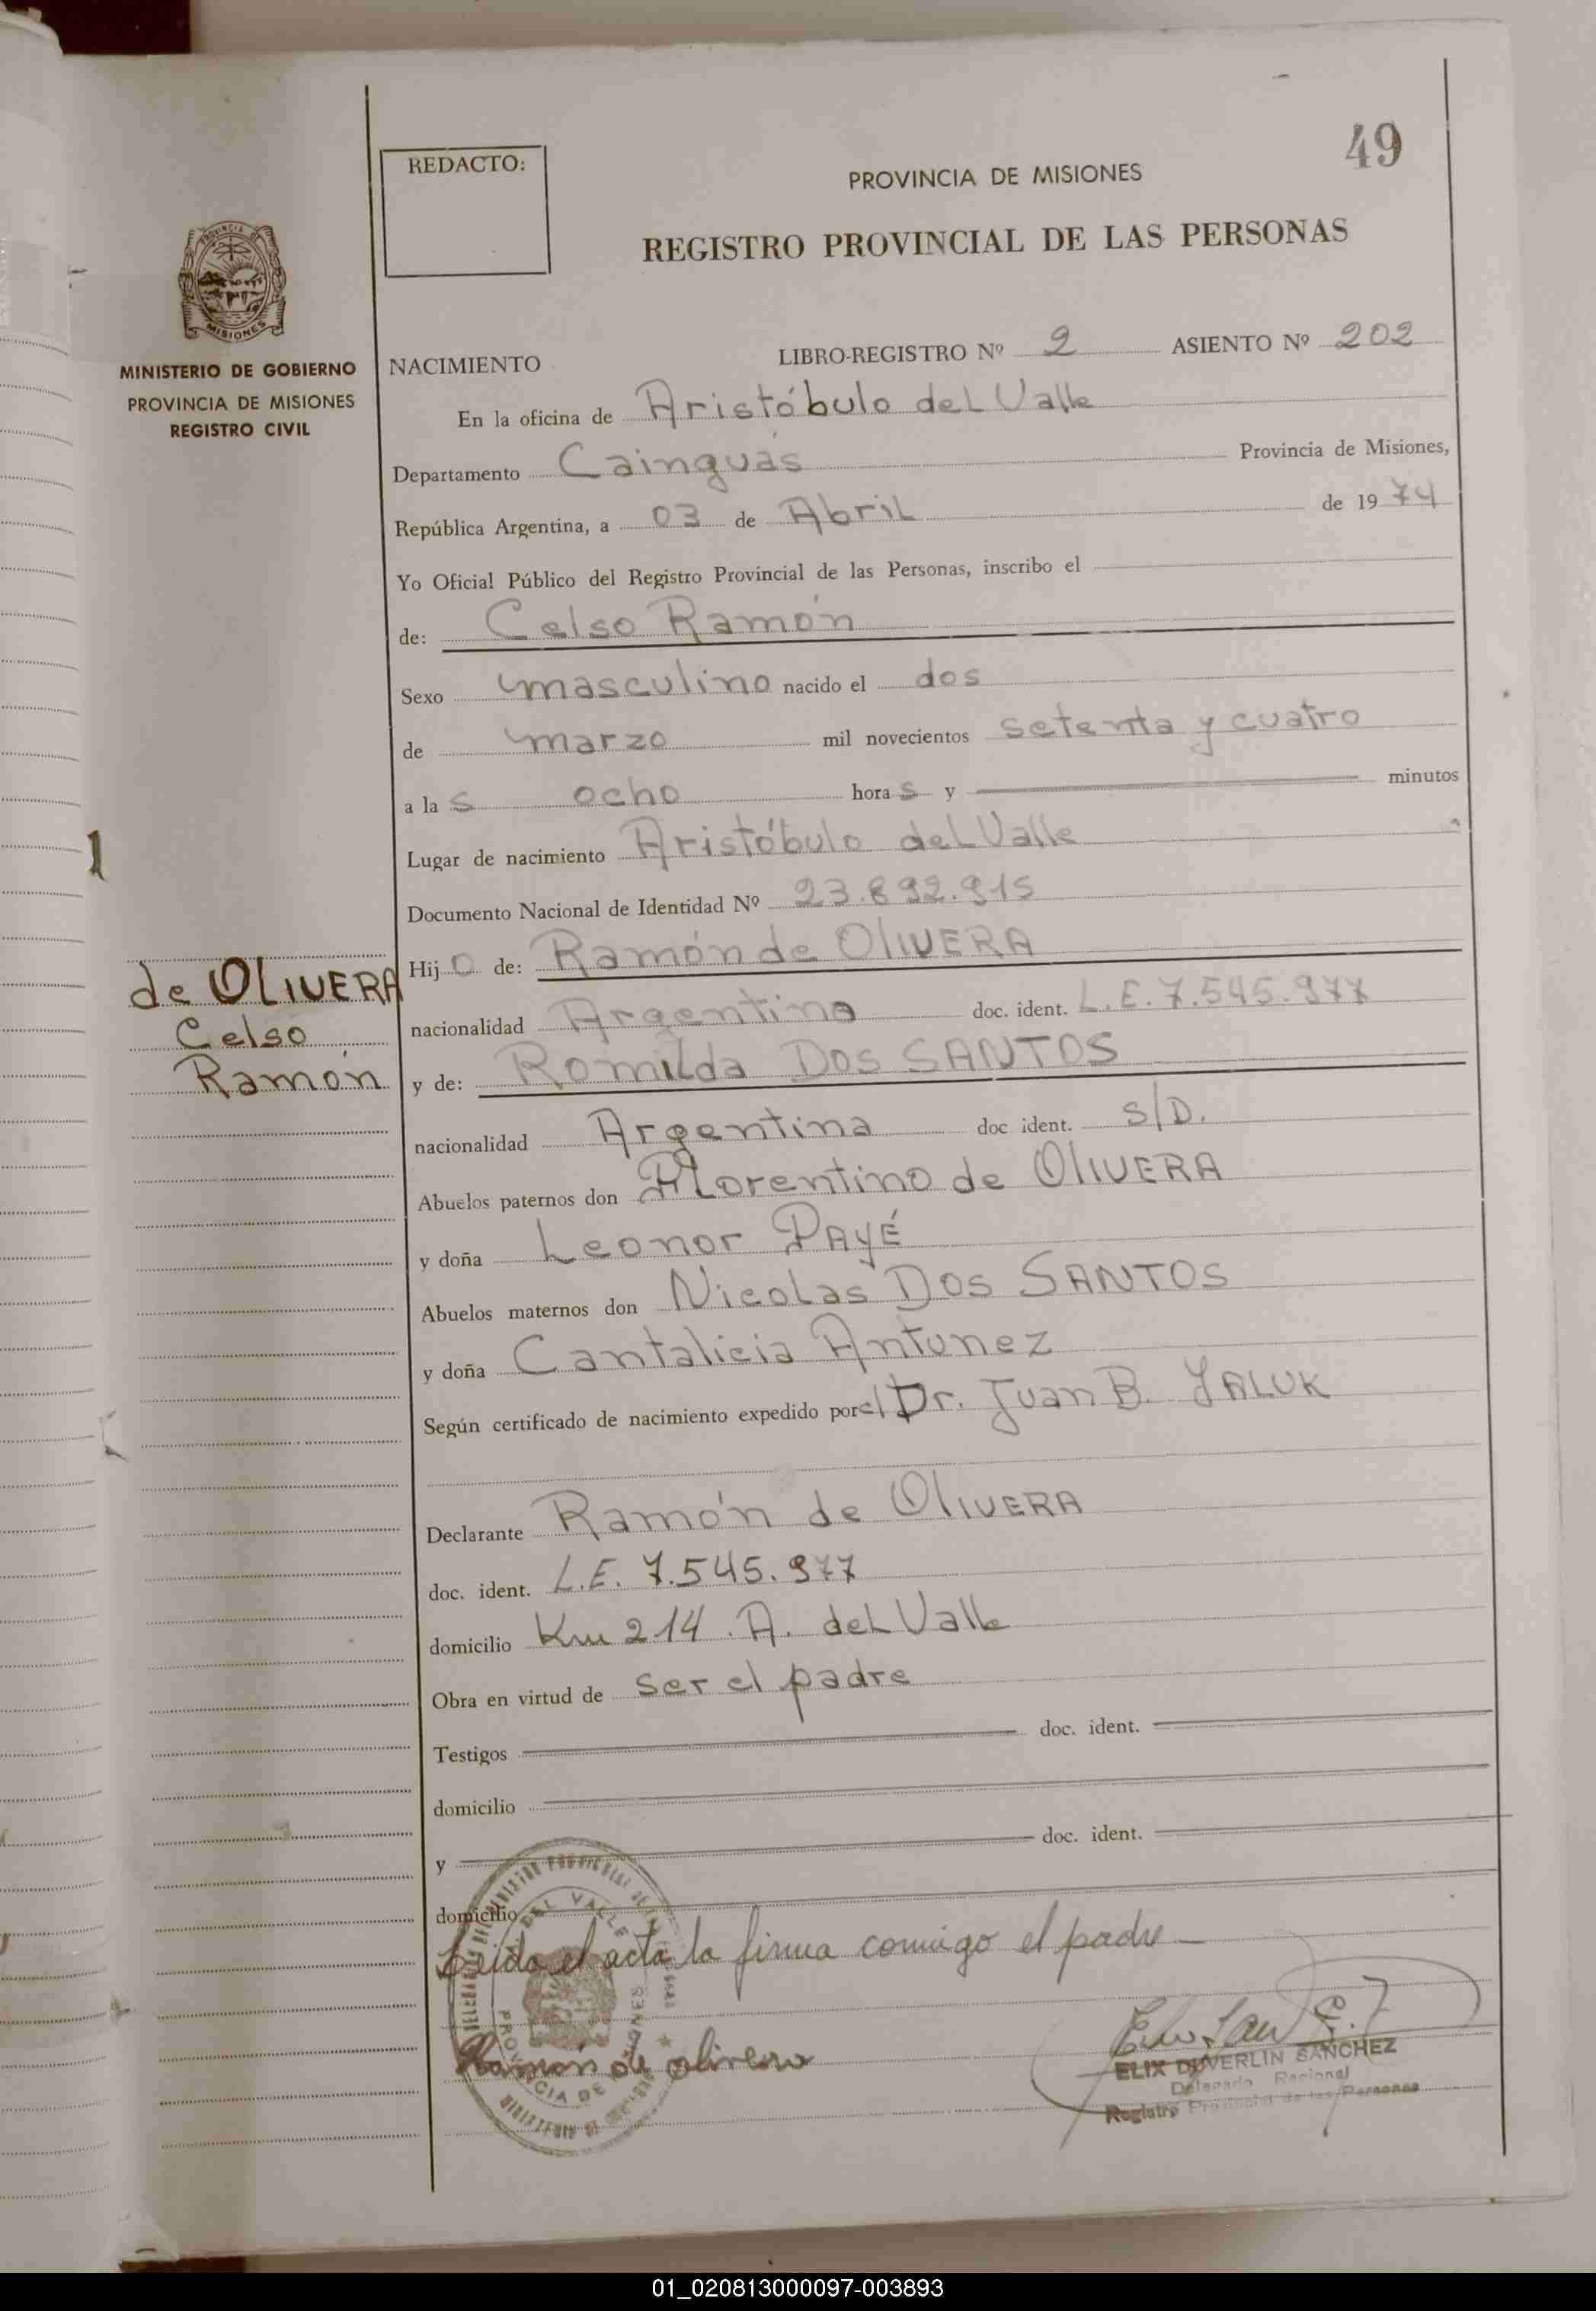 49
REDACTO:
PROVINCIA DE MISIONES
REGISTRO PROVINCIAL DE LAS PERSONAS
MISIONES
MINISTERIO DE GOBIERNO
PROVINCIA DE MISIONES
REGISTRO CIVIL
NACIMIENTO LIBRO-REGISTRO Nº 2 ASIENTO Nº 202
En la oficina de Aristóbulo del Valle
Departamento Cainguás Provincia de Misiones,
República Argentina, a 03 de Abril de 1974
Yo Oficial Público del Registro Provincial de las Personas, inscribo el
de: Celso Ramón
Sexo masculino nacido el dos
de marzo mil novecientos setenta y cuatro
a la s ocho hora s y minutos
Lugar de nacimiento Aristóbulo del Valle
Documento Nacional de Identidad Nº 23.892.915
Hij o de: Ramón de OlIVERA
de OLIVERA
Celso
Ramón
nacionalidad Argentino doc. ident. L.E. 7.545.977
y de: Romilda Dos SANTOS
nacionalidad Argentina doc. ident. S/D.
Abuelos paternos don Florentino de OlIVERA
y doña Leonor PAYÉ
Abuelos maternos don Nicolas Dos SANTOS
y doña Cantalicia Antunez
Según certificado de nacimiento expedido por el Dr. Juan B. YALUK
Declarante Ramón de OlIVERA
doc. ident. L.E. 7.545.977
domicilio Km 214. A. del Valle
Obra en virtud de ser el padre
Testigos doc. ident.
domicilio
y doc. ident.
domicilio
Leida el acta la firma conmigo el padre
Ramón de olivera
ELIX DUVERLIN SANCHEZ
Delegado Regional
Registro Provincial de las Personas
DEL VALLE
PROVINCIA DE MISIONES
01_020813000097-003893